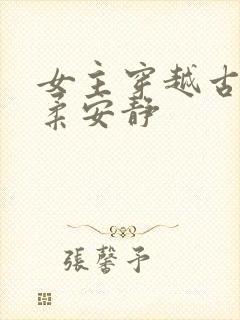 女主穿越古
柔安静
張馨予